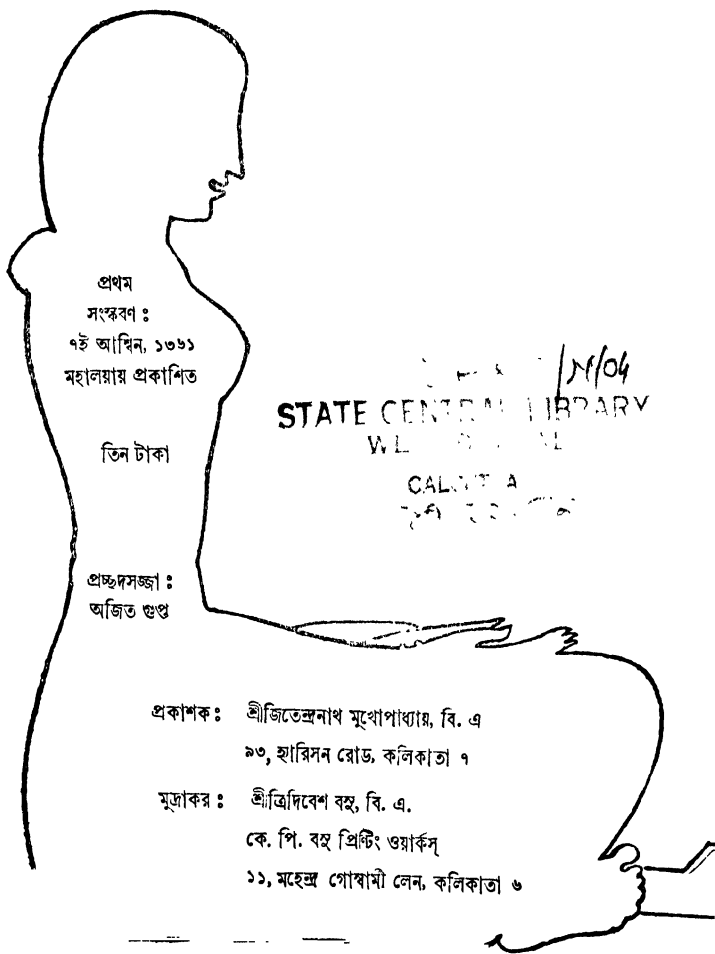 প্রথম
সংস্করণ :
৭ই আশ্বিন, ১৩৬১
মহালয়ায় প্রকাশিত
তিন টাকা
/N/04
STATE CENTRAL LIBRARY
প্রচ্ছদসজ্জা :
অজিত গুপ্ত
প্রকাশক : শ্রীজিতেন্দ্রনাথ মুখোপাধ্যায়, বি. এ
৯৩, হ্যারিসন রোড, কলিকাতা ৭
মুদ্রাকর : শ্রীত্রিদিবেশ বসু, বি. এ.
কে. পি. বসু প্রিন্টিং ওয়ার্কস্
১১, মহেন্দ্র গোস্বামী লেন, কলিকাতা ৬